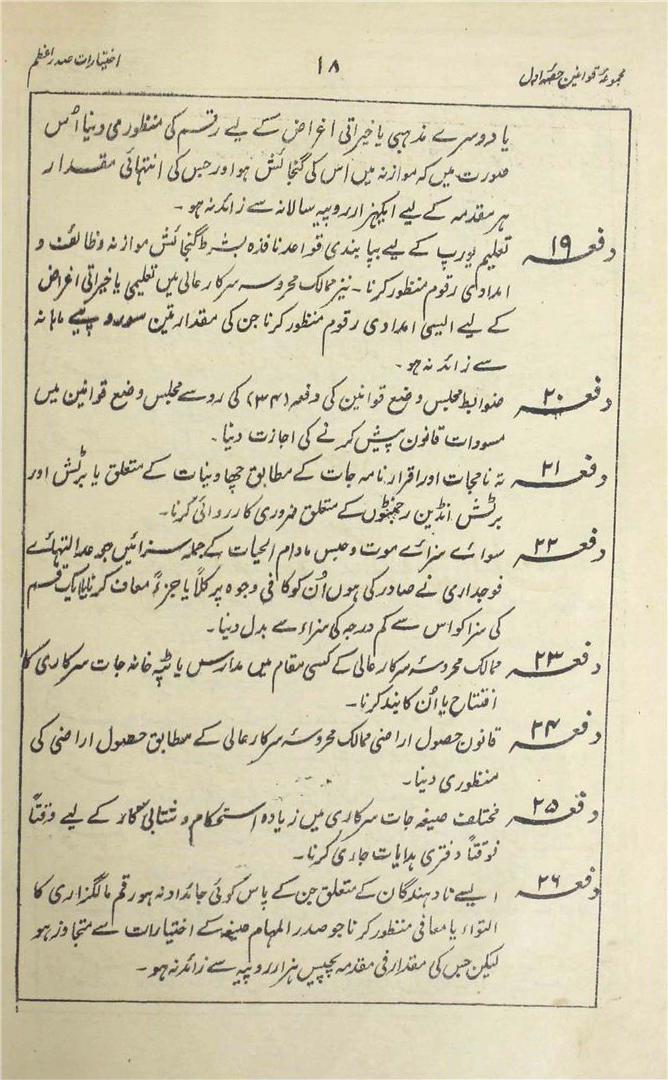 مجموعۂ قوانین حصۂ اول
۱۸
اختیارات صدر اعظم
یا دوسرے مذہبی یا خیراتی اغراض کے لیے رقم کی منظوری دینا اُس
صورت میں کہ موازنہ میں اس کی گنجائش ہو اور جس کی انتہائی مقدار
ہر مقدمہ کے لیے ایکہزار روپیہ سالانہ سے زائد نہ ہو۔
دفعہ ۱۹ تعلیم یورپ کے لیے بپابندی قواعد نافذہ بشرط گنجائش موازنہ وظائف و
امدادی رقوم منظور کرنا۔ نیز ممالک محروسہ سرکار عالی میں تعلیمی یا خیراتی اغراض
کے لیے ایسی امدادی رقوم منظور کرنا جن کی مقدار تین سو روپیے ماہانہ
سے زائد نہ ہو۔
دفعہ ۲۰ ضوابط مجلس وضع قوانین کی دفعہ (۳۴) کی رو سے مجلس وضع قوانین میں
مسودات قانون پیش کرنے کی اجازت دینا۔
دفعہ ۲۱ عہد نامجات اور اقرار نامہ جات کے مطابق چھاونیات کے متعلق یا برٹش اور
برٹش انڈین رجمنٹوں کے متعلق ضروری کارروائی کرنا۔
دفعہ ۲۲ سوائے سزائے موت و حبس مادام الحیات کے جملہ سزائیں جو عدالتہائے
فوجداری نے صادر کی ہوں اُن کو کافی وجوہ پر کلاً یا جزءً معاف کرنا یا ایک قسم
کی سزا کو اس سے کم درجہ کی سزاء سے بدل دینا۔
دفعہ ۲۳ ممالک محروسۂ سرکار عالی کے کسی مقام میں مدارس یا ٹپہ خانہ جات سرکاری کا
افتتاح یا اُن کا بند کرنا۔
دفعہ ۲۴ قانون حصول اراضی ممالک محروسۂ سرکار عالی کے مطابق حصول اراضی کی
منظوری دینا۔
دفعہ ۲۵ مختلف صیغہ جات سرکاری میں زیادہ استحکام و شتابی کار کے لیے وقتاً
فوقتاً دفتری ہدایات جاری کرنا۔
دفعہ ۲۶ ایسے نادہندگان کے متعلق جن کے پاس کوئی جائداد نہ ہو رقم مالگزاری کا
التواء یا معافی منظور کرنا جو صدر المہام صیغہ کے اختیارات سے متجاوز ہو
لیکن جس کی مقدار فی مقدمہ پچیس ہزار روپیہ سے زائد نہ ہو۔